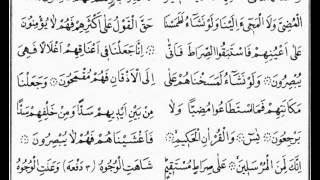 حَقَّ الْقَوْلُ عَلَى أَكْثَرِهِمْ فَهُمْ لَا يُؤْمِنُونَ
۞ إِنَّا جَعَلْنَا فِي أَعْنَاقِهِمْ أَغْلَالًا فَهِيَ
إِلَى الْأَذْقَانِ فَهُمْ مُقْمَحُونَ ۞ وَجَعَلْنَا
مِنْ بَيْنِ أَيْدِيهِمْ سَدًّا وَمِنْ خَلْفِهِمْ سَدًّا
فَأَغْشَيْنَاهُمْ فَهُمْ لَا يُبْصِرُونَ ۞
شَاهَتِ الْوُجُوهُ (٣ دفعة) وَعَنَتِ الْوُجُوهُ
الْمُضِيَّ وَلَا الْمَجِيَّ إِلَيْنَا وَلَوْ نَشَاءُ لَطَمَسْنَا
عَلَى أَعْيُنِهِمْ فَاسْتَبَقُوا الصِّرَاطَ فَأَنَّى
يُبْصِرُونَ ۞ وَلَوْ نَشَاءُ لَمَسَخْنَاهُمْ عَلَى
مَكَانَتِهِمْ فَمَا اسْتَطَاعُوا مُضِيًّا وَلَا
يَرْجِعُونَ ۞ يٰسٓ ۞ وَالْقُرْآنِ الْحَكِيمِ ۞
إِنَّكَ لَمِنَ الْمُرْسَلِينَ ۞ عَلَى صِرَاطٍ مُسْتَقِيمٍ